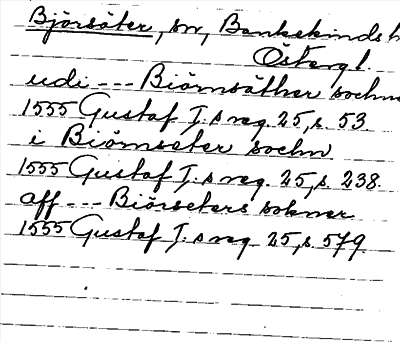 Björsäter, sn, Bankekinds h
Östergl.
udi --- Biörnsäther sochn
1555 Gustaf I:s reg. 25, s. 53.
i Biörnseter sochn
1555 Gustaf I:s reg. 25, s. 238.
aff --- Biörseters sokner
1555 Gustaf I:s reg. 25, s. 579.